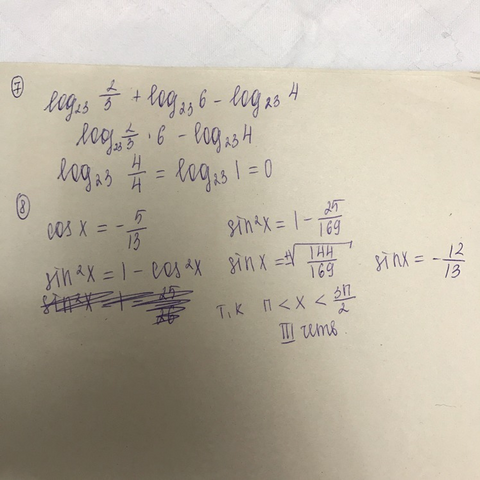 ⑦
log₂₃ 2/3 + log₂₃ 6 - log₂₃ 4
log₂₃ 2/3 · 6 - log₂₃ 4
log₂₃ 4/4 = log₂₃ 1 = 0
⑧
cos x = - 5/13
sin²x = 1 - cos²x
sin²x = 1 - 25/169
sin x = ±√(144/169)
sin x = - 12/13
т.к п < x < 3п/2
III четв.